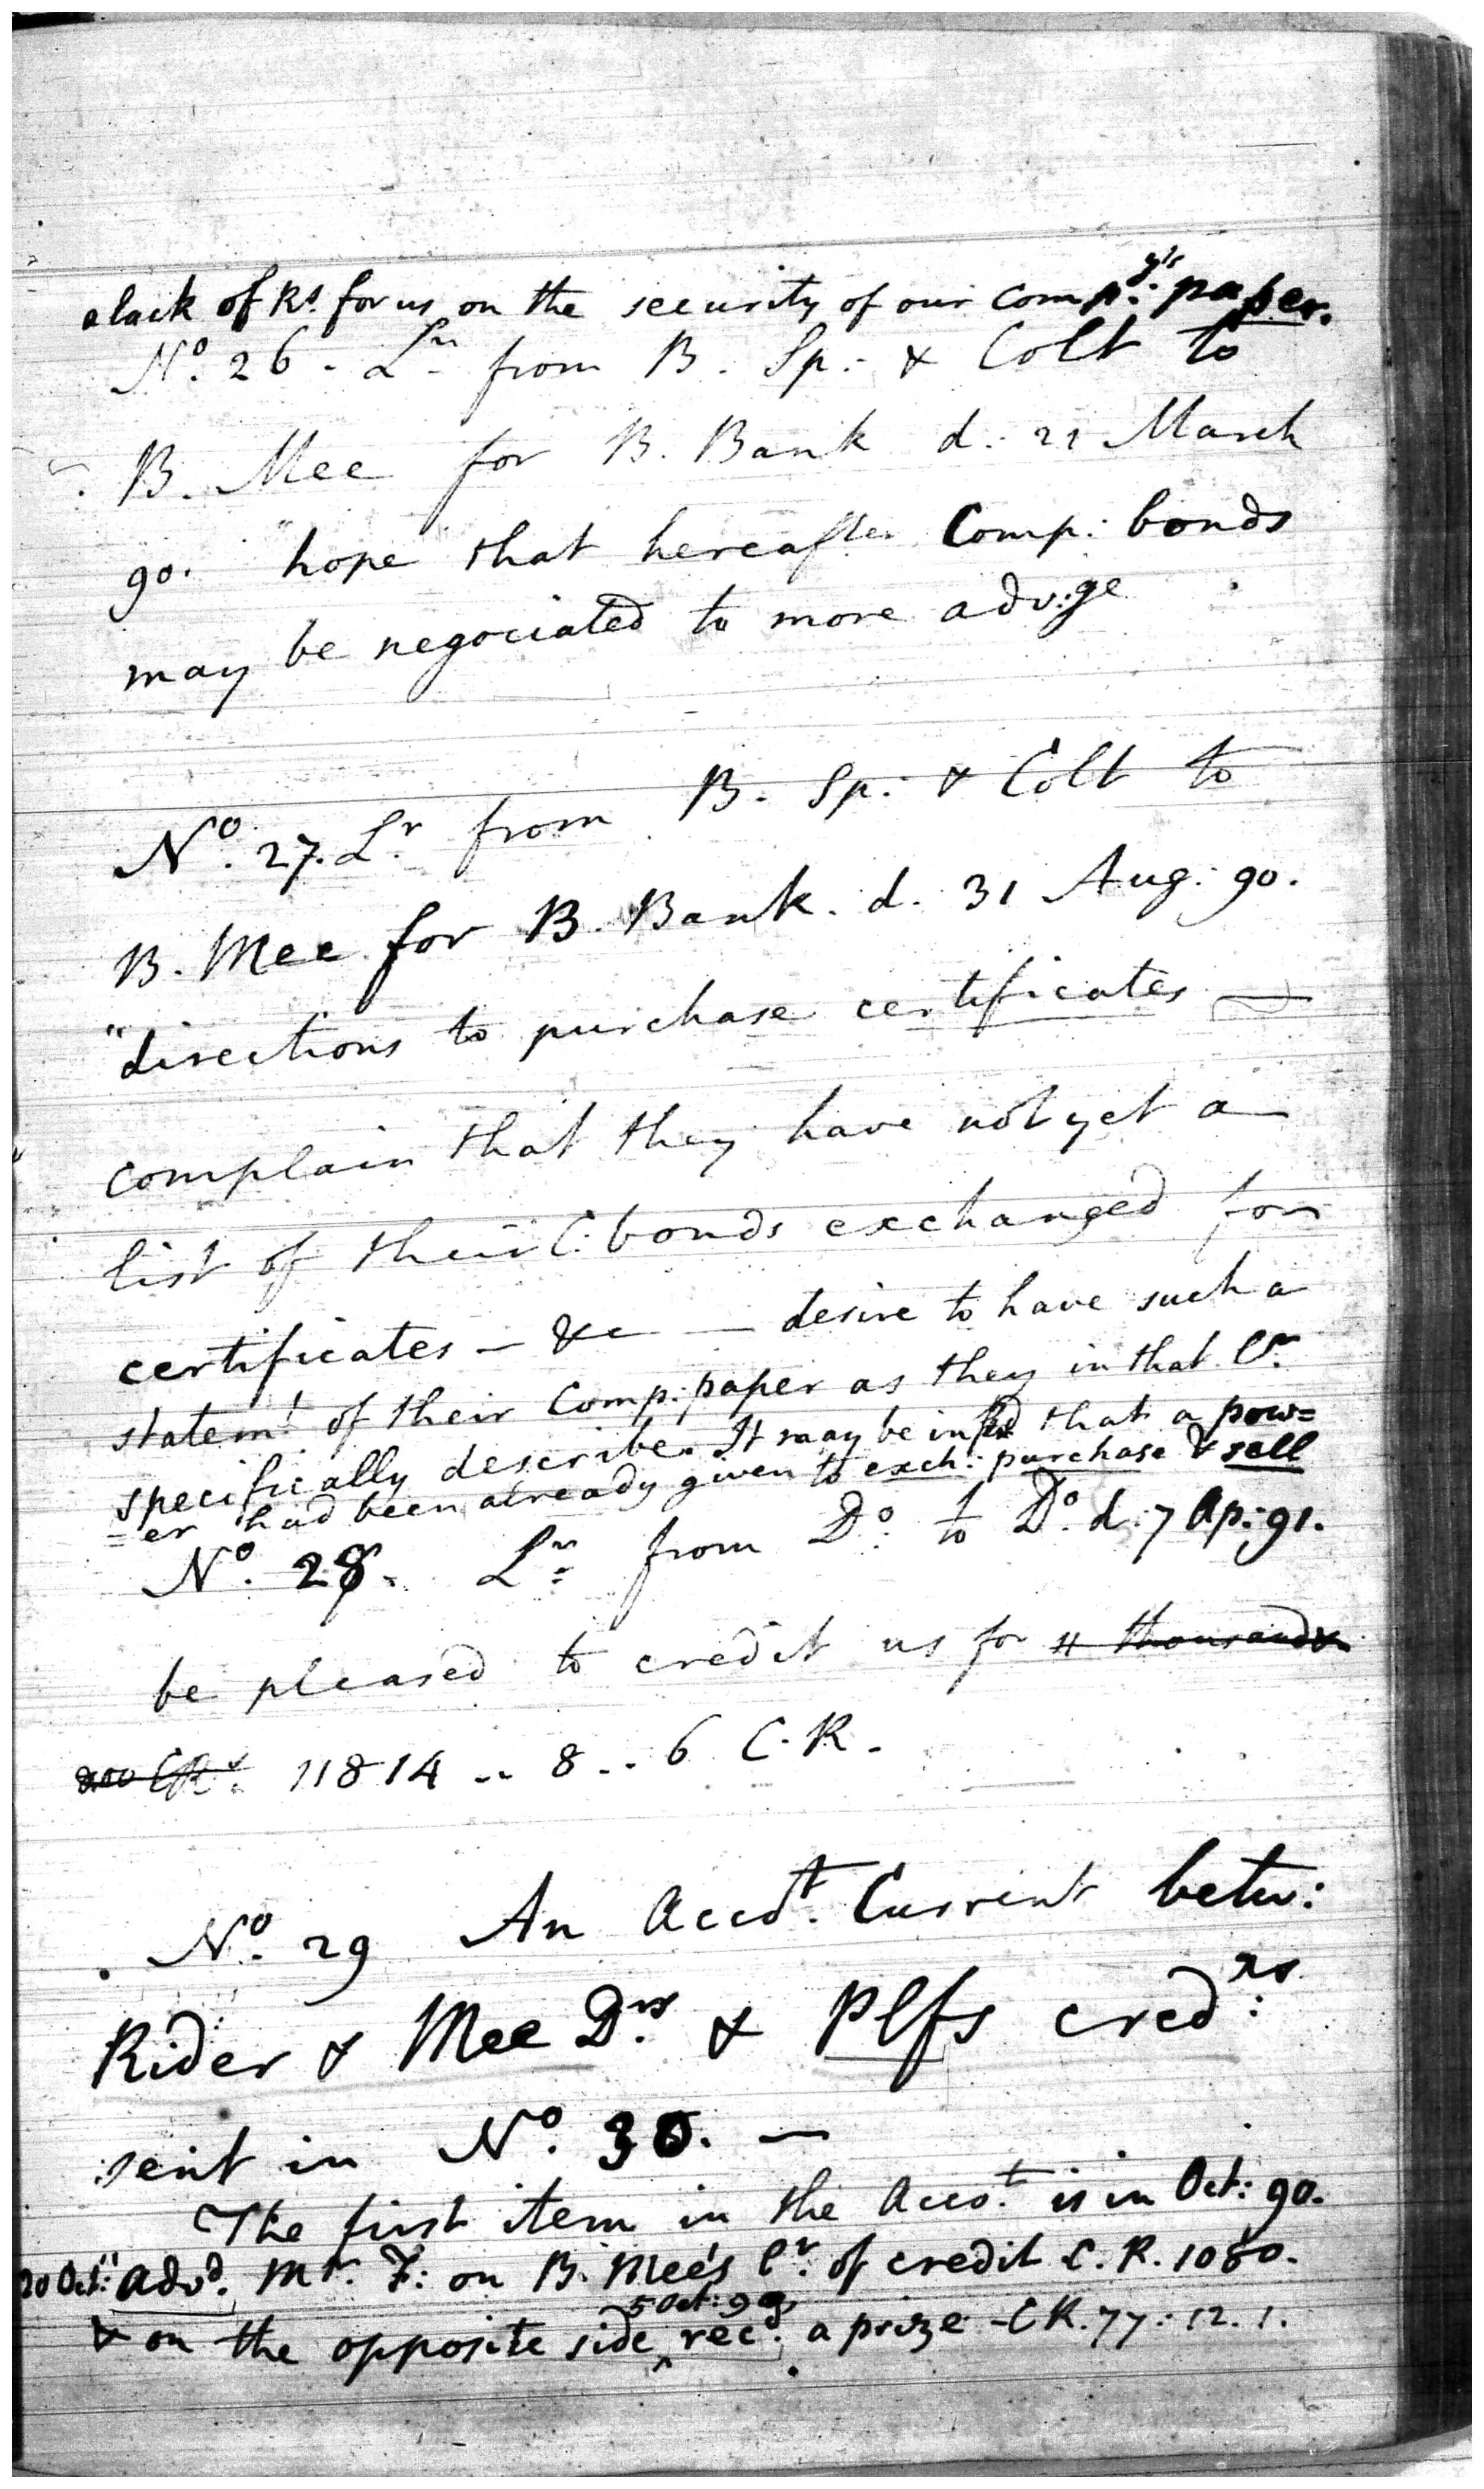 a lack of Rs. for us on the security of our Compy's: paper.
No. 26 - Lr. from B. Sp: & Colt to
B. Mee for B. Bank d: 21 March
90. "hope that hereafter Comp: bonds
may be negociated to more adv:ge
No. 27. Lr. from B. Sp: & Colt to
B. Mee for B. Bank. d. 31 Aug: 90.
"directions to purchase certificates —
complain that they have not yet a
list of their C: bonds exchanged for
certificates — &c — desire to have such a
statemt. of their Comp: paper as they in that lr.
specifically describe. It may be infed that a pow=
=er had been already given to exch: purchase & sell
No. 28. Lr. from Do. to Do. d: 7 Ap: 91.
be pleased to credit us for 11 thousand &
800 CRs. 11814 .. 8 .. 6 C. R.
No. 29 An Accot. Current betw:
Rider & Mee Drs. & Plfs credrs:
sent in No. 30. —
The first item in the Accot. is in Oct: 90.
20 Oct: "advd. Mr. F: on B. Mee's lr. of credit C. R. 1080.
5 Oct: 90
& on the opposite side ^ recd. a prize - CR. 77: 12. 1.